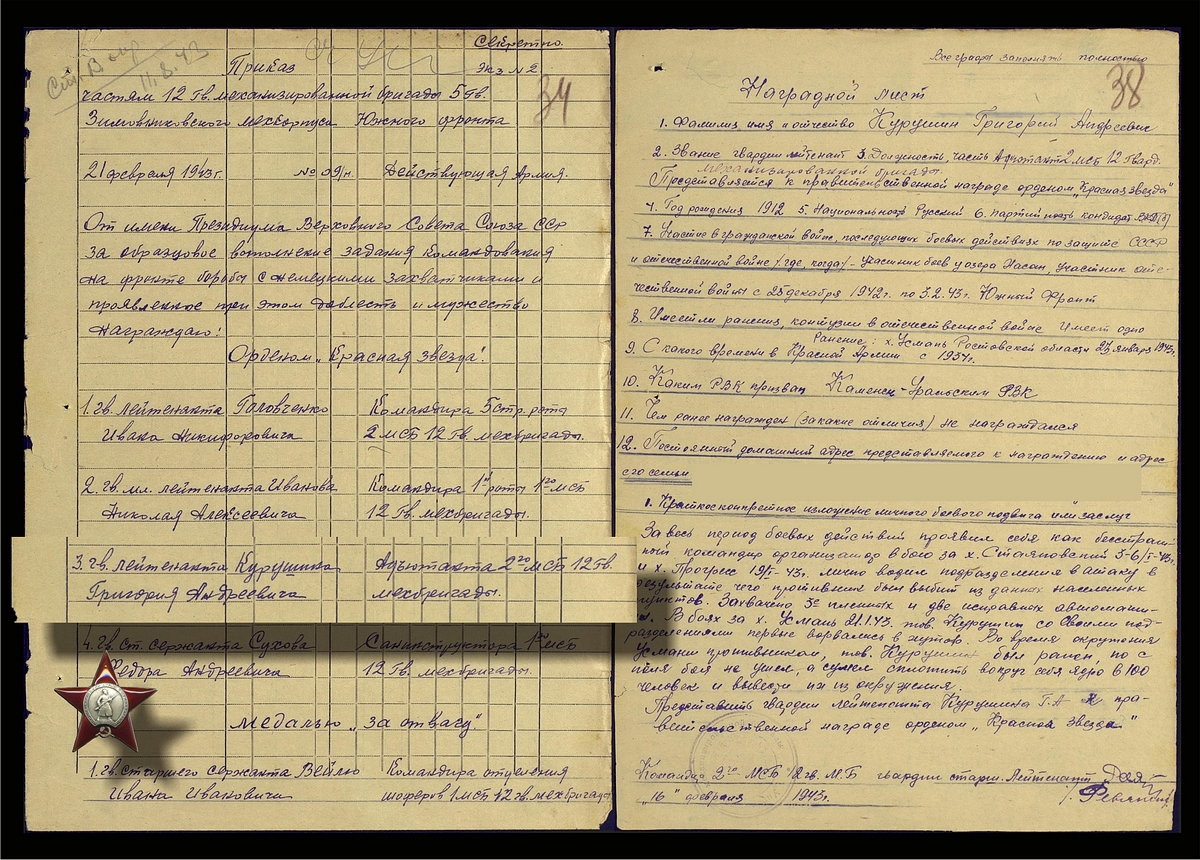 Секретно
Приказ
Экз №2.
34
частям 12 гв. механизированной бригады 5 гв.
Зимовниковского мехкорпуса Южного фронта
21 февраля 1943г. №09/н. Действующая Армия.
От имени Президиума Верховного Совета Союза ССР
за образцовое выполнение задания Командования
на фронте борьбы с немецкими захватчиками и
проявленное при этом доблесть и мужество
Награждаю:
Орденом „Красная звезда".
1. гв. лейтенанта Головченко Командира 5 стр. роты
Ивана Никифоровича 2 мсб 12 гв. мехбригады.
2. гв. мл. лейтенанта Иванова Командира 1й роты 1го мсб
Николая Алексеевича 12 гв. мехбригады.
3. гв. лейтенанта Курушина Адъютанта 2го мсб 12 гв.
Григория Андреевича мехбригады.
4. гв. ст. сержанта Сухова Санинструктора 1го мсб
Федора Андреевича 12 гв. мехбригады.
Медалью „за отвагу"
1. гв. старшего сержанта Командира отделения
Ивана Ивановича шоферов 1 мсб 12 гв. мехбригады
Все графы заполнять полностью
38
Наградной лист
1. Фамилия имя и отчество Курушин Григорий Андреевич
2. Звание гвардии лейтенант 3. Должность, часть Адъютант 2 мсб 12 Гвард.
механизированной бригады.
Представляется к правительственной награде орденом „Красная звезда"
4. Год рождения 1912 5. Национальность Русский 6. Партийность кандидат ВКП(б)
7. Участие в гражданской войне, последующих боевых действиях по защите СССР
и отечественной войне (где когда) – Участник боев у озера Хасан, участник оте-
чественной войны с 25 декабря 1942г. по 3.2.43г. Южный Фронт
8. Имеет ли ранения, контузии в отечественной войне Имеет одно
Ранение: х. Усмань Ростовской области января 1943г.
9. С какого времени в Красной Армии с 1937г.
10. Каким РВК призван Каменск-Уральским РВК
11. Чем ранее награжден (за какие отличия) не награждался
12. Постоянный домашний адрес представляемого к награждению и адрес
его семьи
1. Краткое конкретное изложение личного боевого подвига или заслуг
За весь период боевых действий проявил себя как бесстраш-
ный командир организатор в бою за х. Стаяновский 5-6/I-43г.
и х. Прогресс 19/I-43г. лично водил подразделения в атаку в
результате чего противник был выбит из данных населенных
пунктов. Захвачено пленных и две исправных автомаши-
ны. В боях за х. Усмань 21.1.43. тов. Курушин со своими под-
разделениями первые ворвались в хутор. Во время окружения
Усмани противником, тов. Курушин был ранен, но с
поля боя не ушел, а сумел сплотить вокруг себя ядро в 100
человек и вывести их из окружения.
Представить гвардии лейтенанта Курушина Г.А к пра-
вительственной награде орденом „Красная Звезда"
Командир 2го МСБ 12 гв. М.Б гвардии старш. Лейтенант
„16" февраля 1943г.